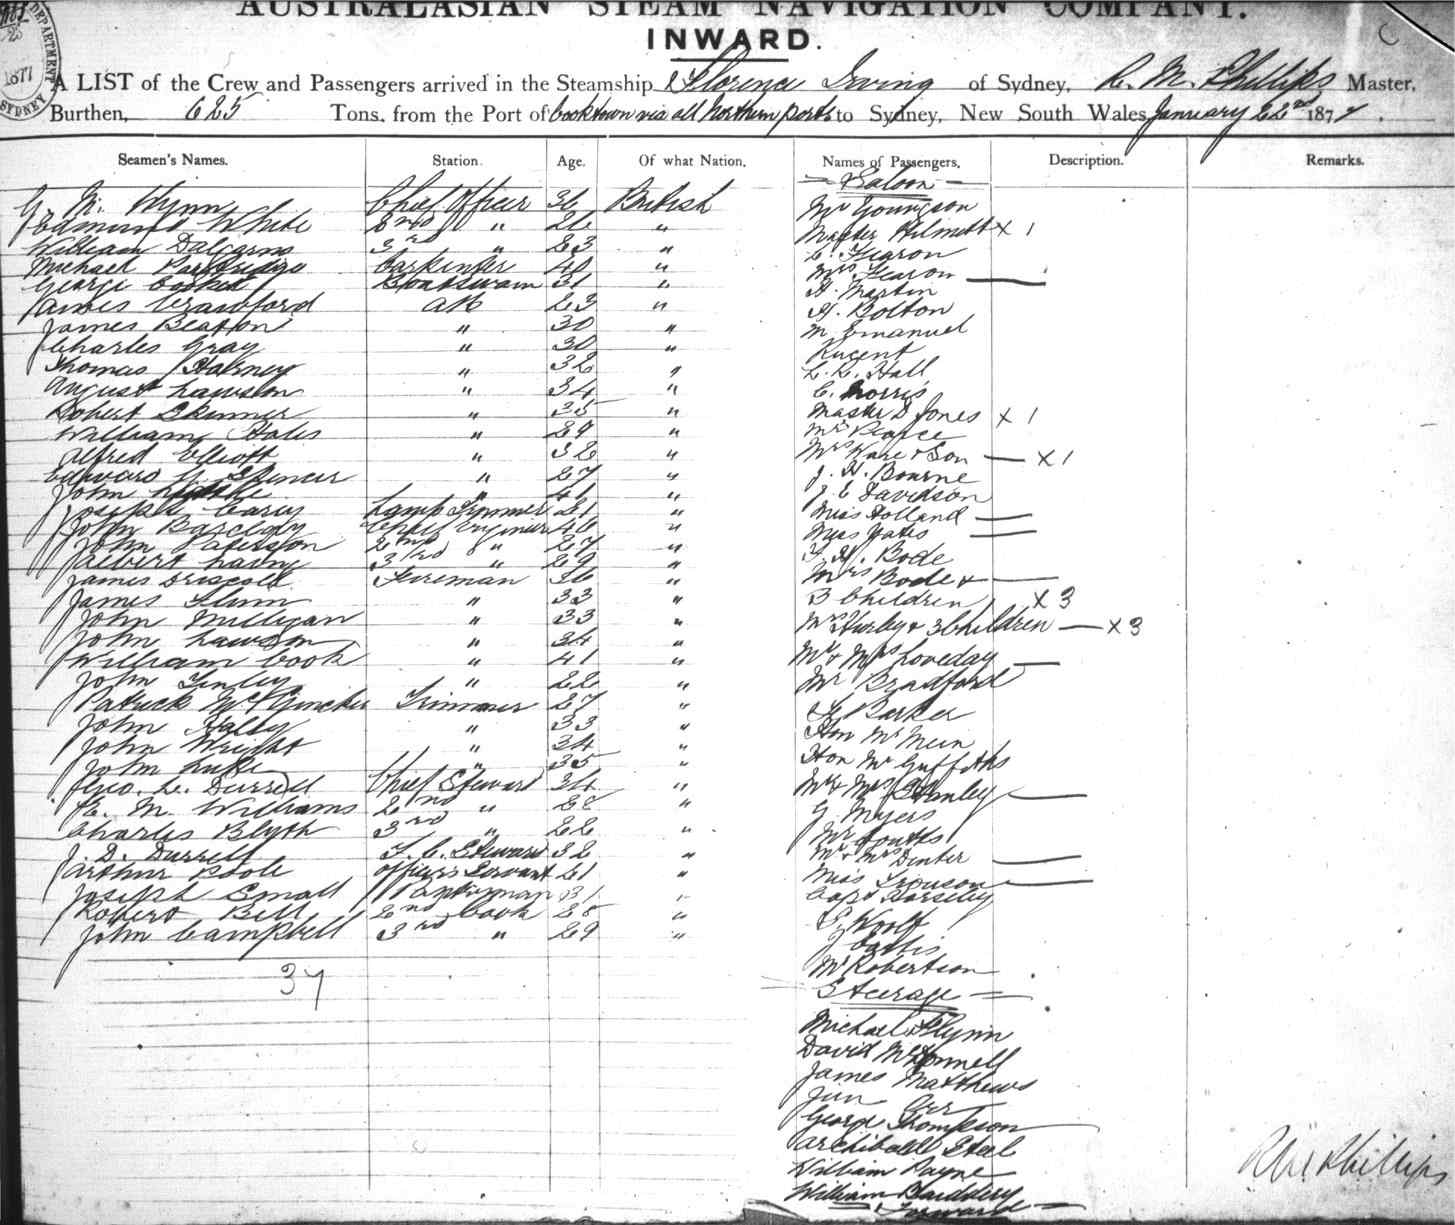 AUSTRALASIAN STEAM NAVIGATION COMPANY.
INWARD.
DEPARTMENT
1877
SYDNEY
A LIST of the Crew and Passengers arrived in the Steamship Florence Irving of Sydney, R. M. Phillips Master,
Burthen, 625 Tons, from the Port of Cooktown via all Northern ports to Sydney, New South Wales January 22nd 1877.
Seamen's Names. Station. Age. Of what Nation. Names of Passengers. Description. Remarks.
Saloon
G. M. Wynn Chief Officer 36 British Mr Youngson
Edmund White 2nd " 26 " Master Wilmott x 1
William Dalgarno 3rd 23 " C. Fearon
Michael Partridge Carpenter 40 " Mrs Fearon
George Boatswain 31 " H. Martin
James Crawford AB 23 " H. Bolton
James Beaton " 30 " M. Emanuel
Charles Gray " 30 " Rucent
Thomas " 32 " L. L. Hall
August Lawson " 34 " C. Norris
Robert Skinner " 35 " Master D Jones x 1
William Hales " 29 " Mrs Pearce
Alfred Elliott " 32 " Mrs Ware & Son x 1
Edward J. Spencer " 27 " J. H. Bourne
John " 41 " J. E Davidson
Joseph Carey Lamp Trimmer 21 " Miss Holland
John Barclay Chief Engineer 46 " Miss Yates
John Paterson 2nd " 27 " F. H. Bode
Albert Laing 3rd " 29 " Mrs Bode &
James Driscold Fireman 36 " 3 Children x 3
James " 33 " Mrs & 3 Children x 3
John Milligan " 33 " Mr & Mrs Loveday
John Lawson " 34 " Mr Bradford
William Cook " 41 " Barker
John Finley " 22 " Hon Mr Mein
Patrick Trimmer 27 " Hon Mr Griffiths
John Kelly " 33 " Mr & Mrs Stanley
John Wright " 34 " G Myers
John Luke " 35 " Mr Coutts
Geo. L. Durrell Chief Steward 34 " Mr & Mrs Dinter
E. M. Williams 2nd " 22 " Miss
Charles Blyth 3rd " 22 " Capt
J. D. Durrell F. C. Steward 32 " Woolf
Arthur Poole Officers Servant 21 " J
Joseph Small Pantryman 31 " Mr Robertson
Robert Bell 2nd Cook 28 "
John Campbell 3rd " 29 "
37
Steerage
Michael Flynn
David McDonnell
James Matthews
Jun
George Thompson
Archibald Steel
William Payne
William
Forward
R M Phillips